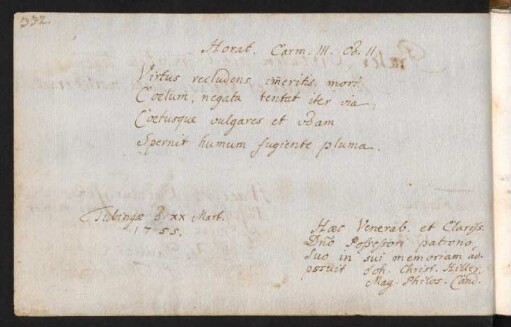 332.
Horat. Carm. III. Od. II.
Virtus recludens im̄eritis mori
Coelum, negata tentat iter via,
Coetusque vulgares et udam
Spernit humum fugiente pluma.
Tubingæ d. xx Mart.
1755.
Hæc Venerab. et Clariss.
Dn̄o Possessori patrono
suo in sui memoriam ad-
posuit Joh. Christ. Hiller.
Mag. Philos. Cand.